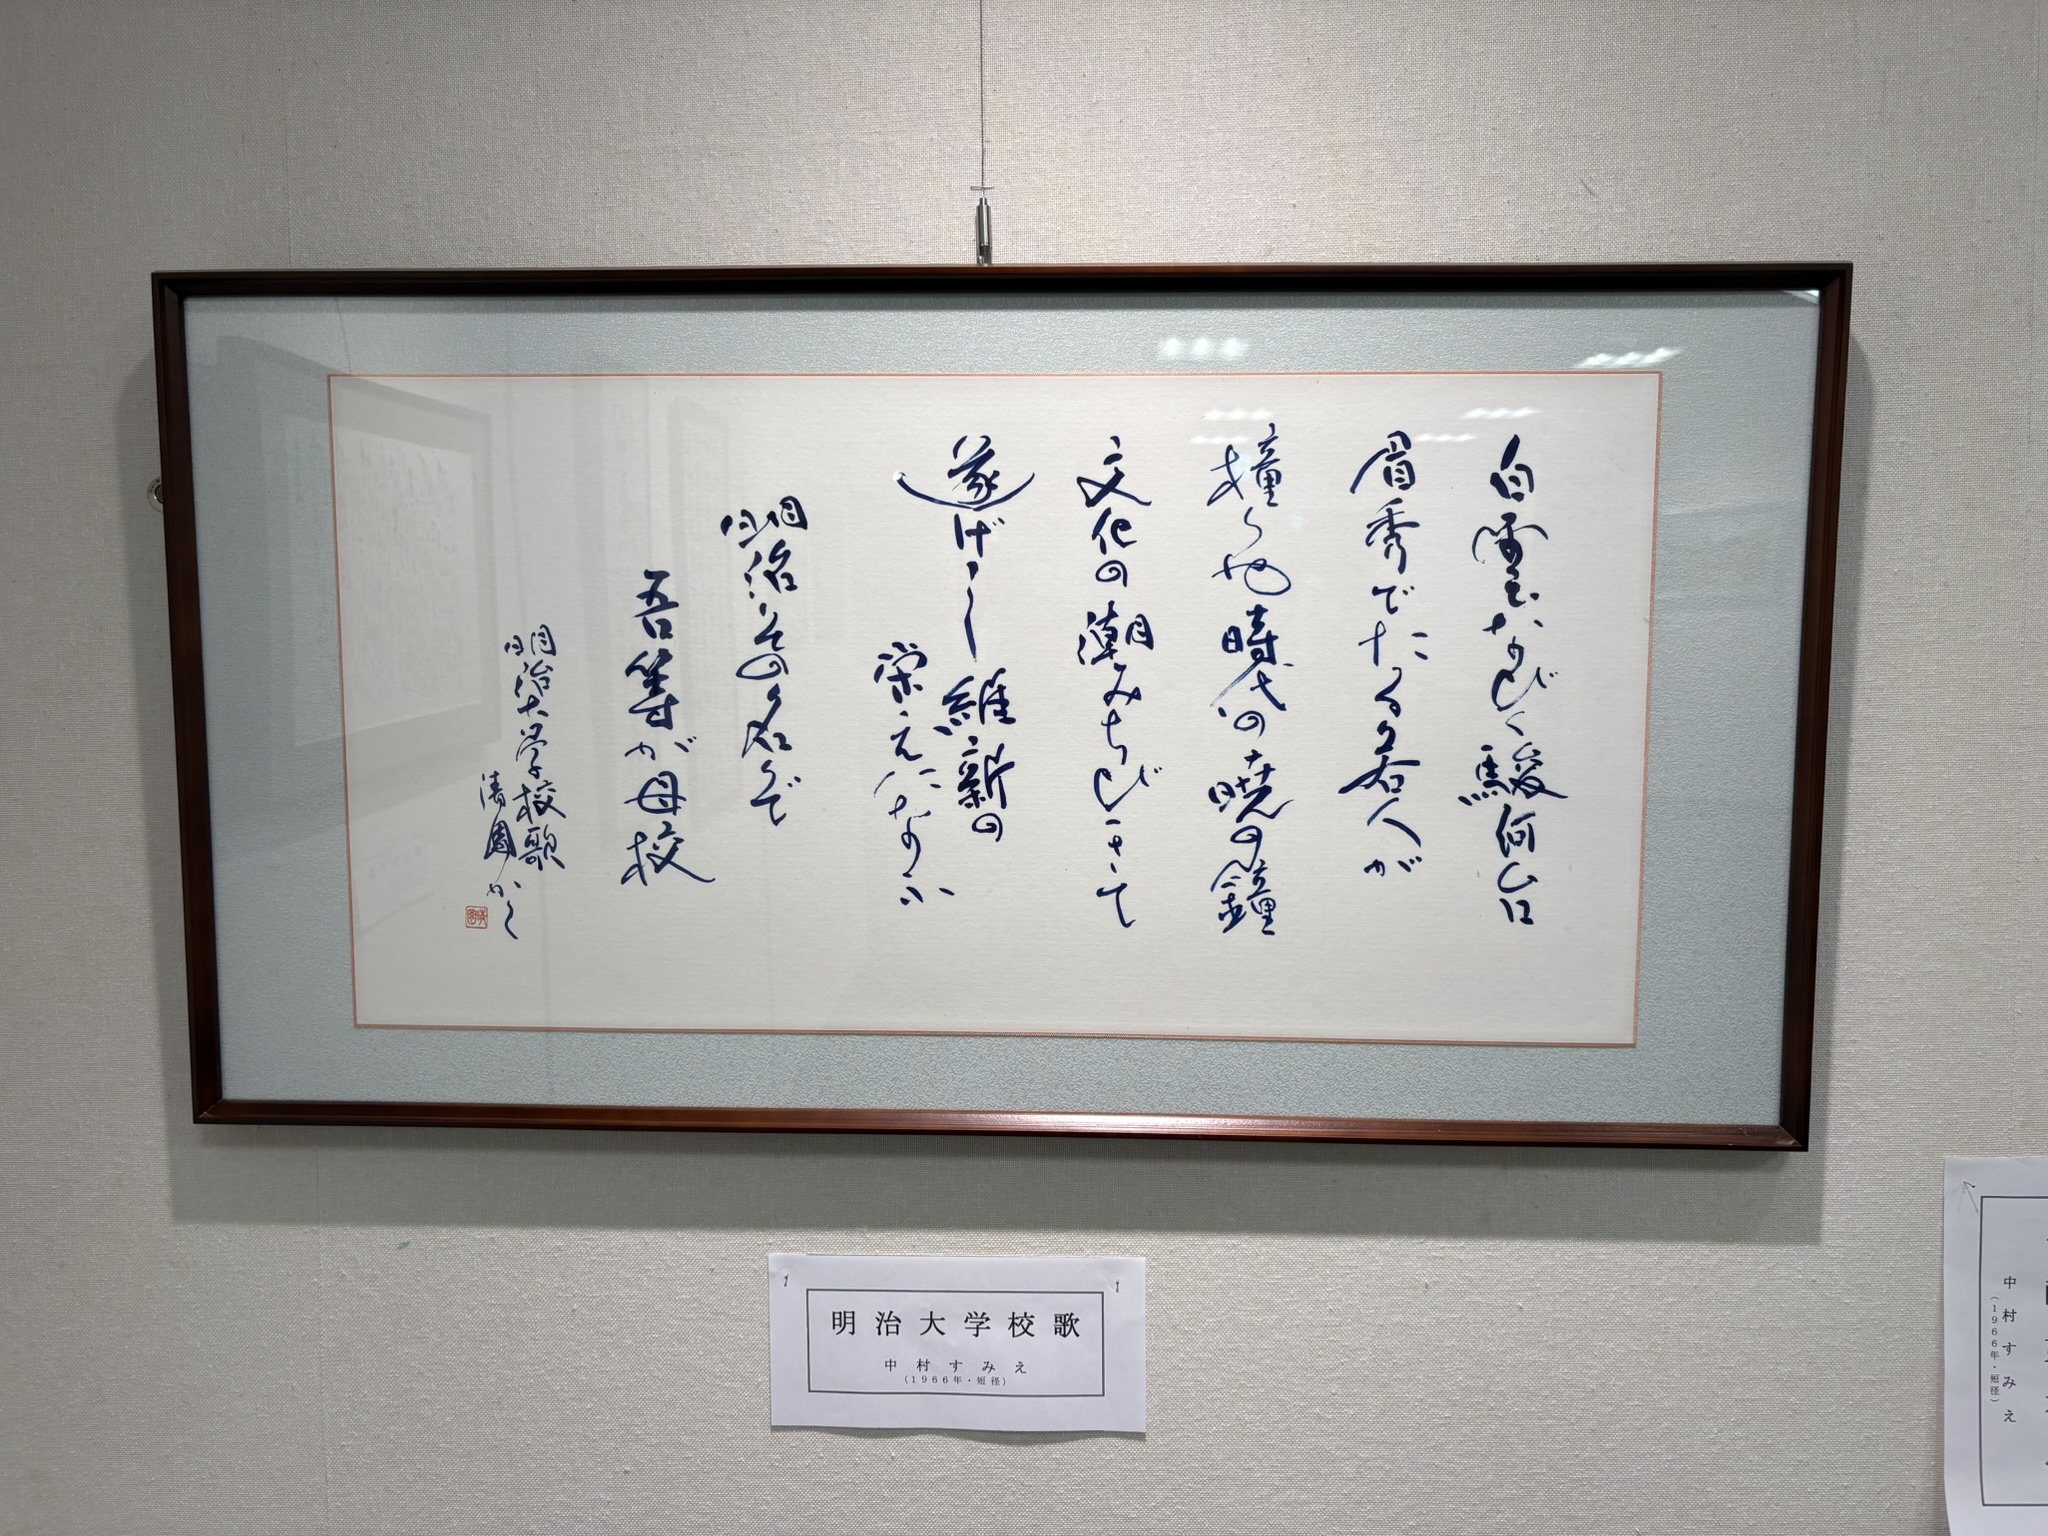 白雲なびく駿河台
眉秀でたる若人が
撞くや時代の暁の鐘
文化の潮みちびきて
遂げし維新の
栄えになふ
明治その名ぞ
吾等が母校
明治大学校歌
清園かく
明治大学校歌
中村すみえ
(1966年・短径)
中村すみえ
(1966年・短径)